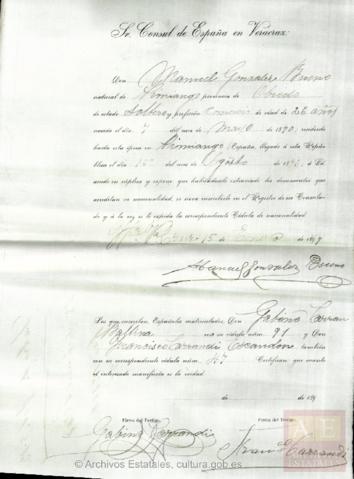 Sr. Consul de España en Veracruz:
Don Manuel Gonzalez Bueno
natural de provincia de Oviedo
de estado Soltero y profesión Comercio de edad de 26 años
nacido el día 7 del mes de Mayo de 1870, residente
hasta esta época en España, llegado á esta Repú-
blica el día del mes de Agosto de 189
acude en súplica y expone que habiéndosele extraviado los documentos que
acreditan su nacionalidad, se sirva matricularle en el Registro de su Consula-
do y á la vez se le expida la correspondiente Cédula de nacionalidad.
15 de Enero de 1897
Manuel Gonzalez Bueno
Los que suscriben, Españoles matriculados, Don Gabino Carran
Ballina con su cédula núm. 91 y Don
Francisco Carrandi Escandon también
con su correspondiente cédula núm. 47 Certifican que cuanto
el interesado manifiesta es la verdad.
de de 189
Firma del Testigo. Firma del Testigo.
Gabino Carrandi Franco Carrandi
AE
ESTATALES
© Archivos Estatales, cultura.gob.es